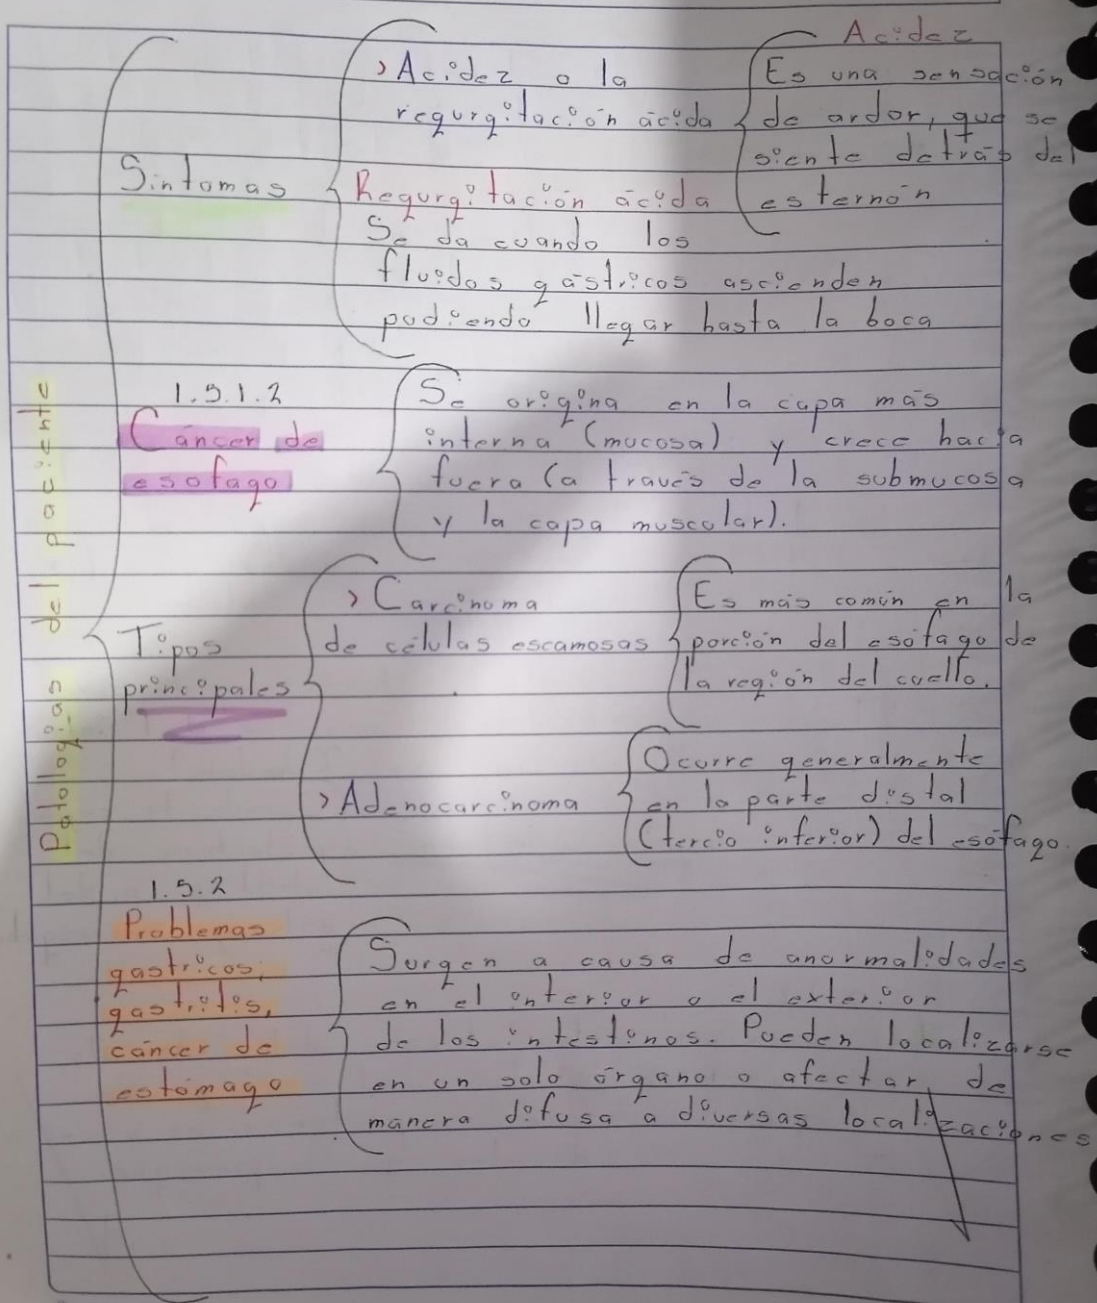 Patologias del paciente
Sintomas
> Acidez o la
regurgitación ácida
Acidez
Es una sensación
de ardor, que se
siente detrás del
esternón
Regurgitación ácida
Se da cuando los
fluidos gástricos ascienden
pudiendo llegar hasta la boca
1.5.1.2
Cáncer de
esofago
Se origina en la capa más
interna (mucosa) y crece hacia
fuera (a través de la submucosa
y la capa muscular).
Tipos
principales
> Carcinoma
de células escamosas
Es más común en la
porción del esófago de
la región del cuello.
> Adenocarcinoma
Ocurre generalmente
en la parte distal
(tercio inferior) del esófago.
1.5.2
Problemas
gastricos,
gastritis,
cáncer de
estómago
Surgen a causa de anormalidades
en el interior o el exterior
de los intestinos. Pueden localizarse
en un solo órgano o afectar de
manera difusa a diversas localizaciones